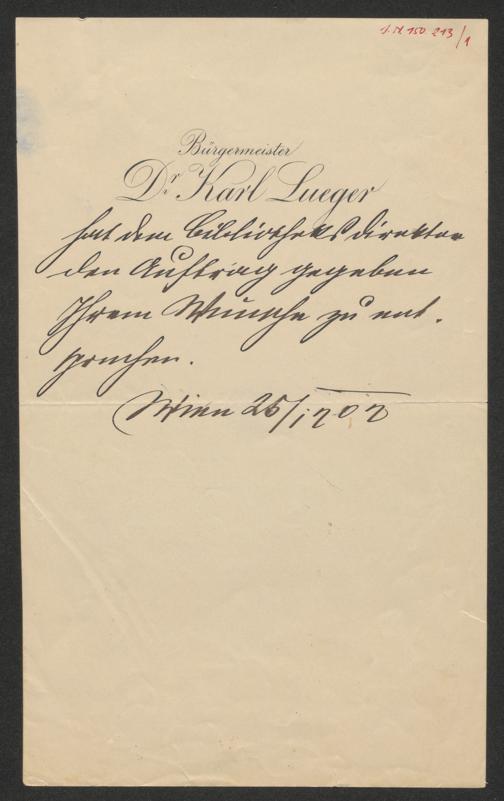 I.N. 150.213/1
Bürgermeister
Dr. Karl Lueger
hat dem Bibliotheksdirektor
den Auftrag gegeben
Ihrem Wunsche zu ent-
sprechen.
Wien 25/